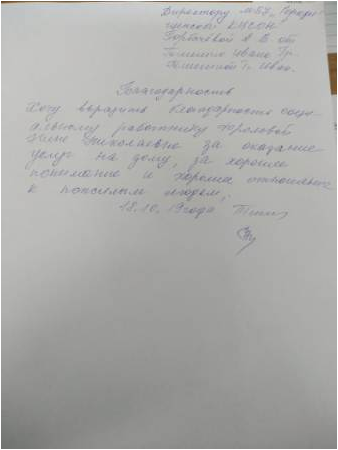 Директору МБУ "Городи-
щенский КЦСОН
Горбачёвой А. В. от
Ивана Гр.
Благодарность
Хочу выразить благодарность соци-
альному работнику Фроловой
Нине Николаевне за оказание
услуг на дому, за хорошее
понимание и хорошее отношение
к пожилым людям,
18.10. 19года